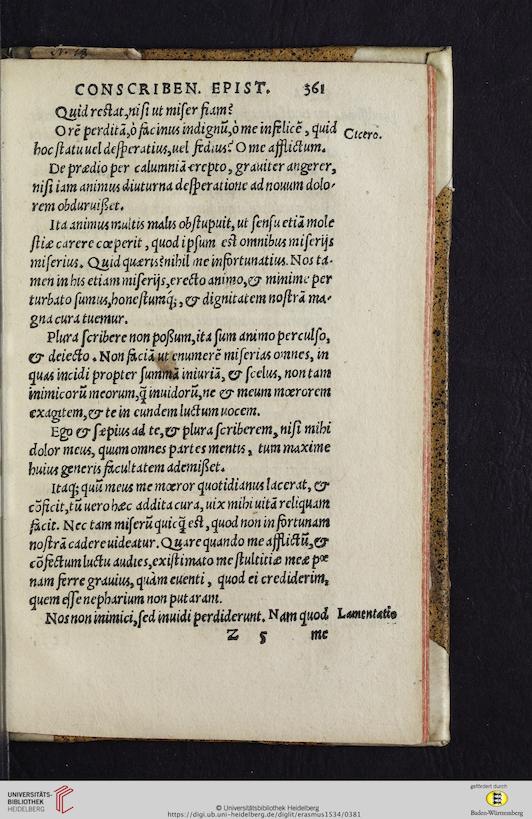 CONSCRIBEN. EPIST. 361
Quid restat, nisi ut miser fiam?
O rē perditā, ò facinus indignū, ò me infelicē, quid
Cicero.
hoc statu uel desperatius, uel fœdius? O me afflictum.
De prædio per calumniā erepto, grauiter angerer,
nisi iam animus diuturna desperatione ad nouum dolo-
rem obduruisset.
Ita animus multis malis obstupuit, ut sensu etiā mole
stiæ carere cœperit, quod ipsum est omnibus miserijs
miserius. Quid quæris? nihil me infortunatius. Nos ta-
men in his etiam miserijs, erecto animo, & minime per
turbato sumus, honestumq́;, & dignitatem nostrā ma-
gna cura tuemur.
Plura scribere non possum, ita sum animo perculso,
& deiecto. Non faciā ut enumerē miserias omnes, in
quas incidi propter summā iniuriā, & scelus, non tam
inimicorū meorum, q̄ inuidorū, ne & meum mœrorem
exagitem, & te in eundem luctum uocem.
Ego & sæpius ad te, & plura scriberem, nisi mihi
dolor meus, quum omnes partes mentis, tum maxime
huius generis facultatem ademisset.
Itaq; quū meus me mœror quotidianus lacerat, &
cōficit, tū uero hæc addita cura, uix mihi uitā reliquam
facit. Nec tam miserū quicq̄ est, quod non in fortunam
nostrā cadere uideatur. Quare quando me afflictū, &
cōfectum luctu audies, existimato me stultitiæ meæ pœ
nam ferre grauius, quàm euenti, quod ei crediderim,
quem esse nepharium non putaram.
Nos non inimici, sed inuidi perdiderunt. Nam quod
Lamentatio
Z 5 me
UNIVERSITÄTS-
BIBLIOTHEK
HEIDELBERG
© Universitätsbibliothek Heidelberg
https://digi.ub.uni-heidelberg.de/diglit/erasmus1534/0381
gefördert durch
Baden-Württemberg